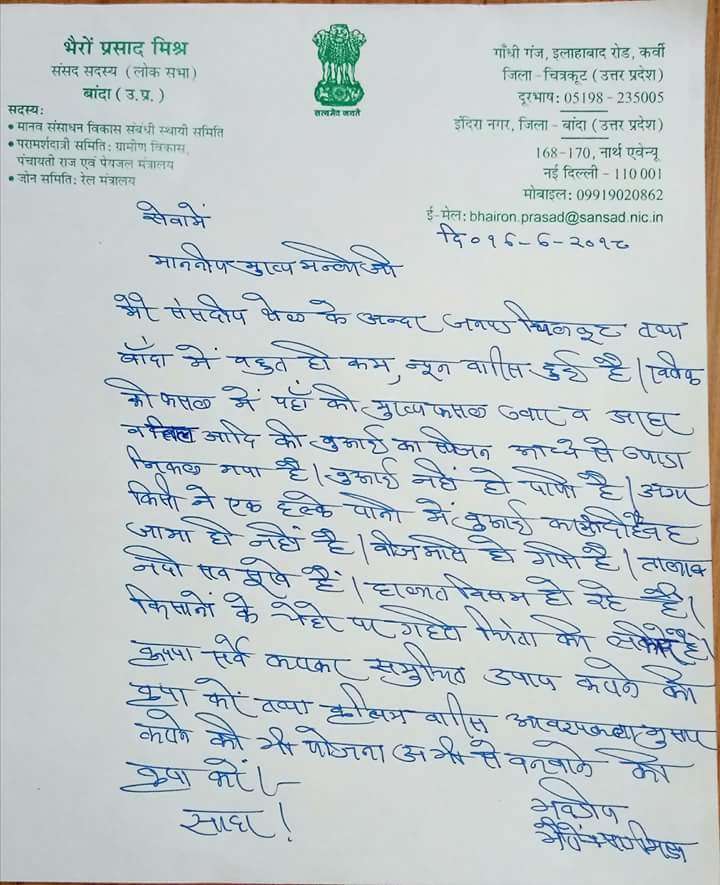 भैरों प्रसाद मिश्र
संसद सदस्य (लोक सभा)
बांदा (उ.प्र.)
सदस्य:
• मानव संसाधन विकास संबंधी स्थायी समिति
• परामर्शदात्री समिति: ग्रामीण विकास,
पंचायती राज एवं पेयजल मंत्रालय
• जोन समिति: रेल मंत्रालय
सत्यमेव जयते
गाँधी गंज, इलाहाबाद रोड, कर्वी
जिला - चित्रकूट (उत्तर प्रदेश)
दूरभाष: 05198 - 235005
इंदिरा नगर, जिला - बांदा (उत्तर प्रदेश)
168-170, नार्थ एवेन्यू
नई दिल्ली - 110 001
मोबाइल: 09919020862
ई-मेल: bhairon.prasad@sansad.nic.in
सेवामें
माननीय मुख्य मन्त्री जी
मेरे संसदीय क्षेत्र के अन्दर जनपद चित्रकूट तथा
बाँदा में बहुत ही कम, न्यून वारिस हुई है।
की फसल में यहाँ की मुख्य फसल ज्वार व
आदि की बुआई का सीजन आधे से ज्यादा
निकल गया है। बुआई नहीं हो पायी है। अगर
किसी ने एक हल्के पानी में बुआई
जामा ही नहीं है। बीज हो है। तालाब
नदी सब सूखे हैं। हालात विसम हो रहे हैं।
किसानों के चेहरे पर गहरी चिंता की है।
कृपया सर्वे कराकर समुचित उपाय करने की
कृपा करें तथा कृत्रिम वारिस आवश्यकतानुसार
कराने की भी योजना अभी से बनवाने की
कृपा करें।
सादर!
भवदीय